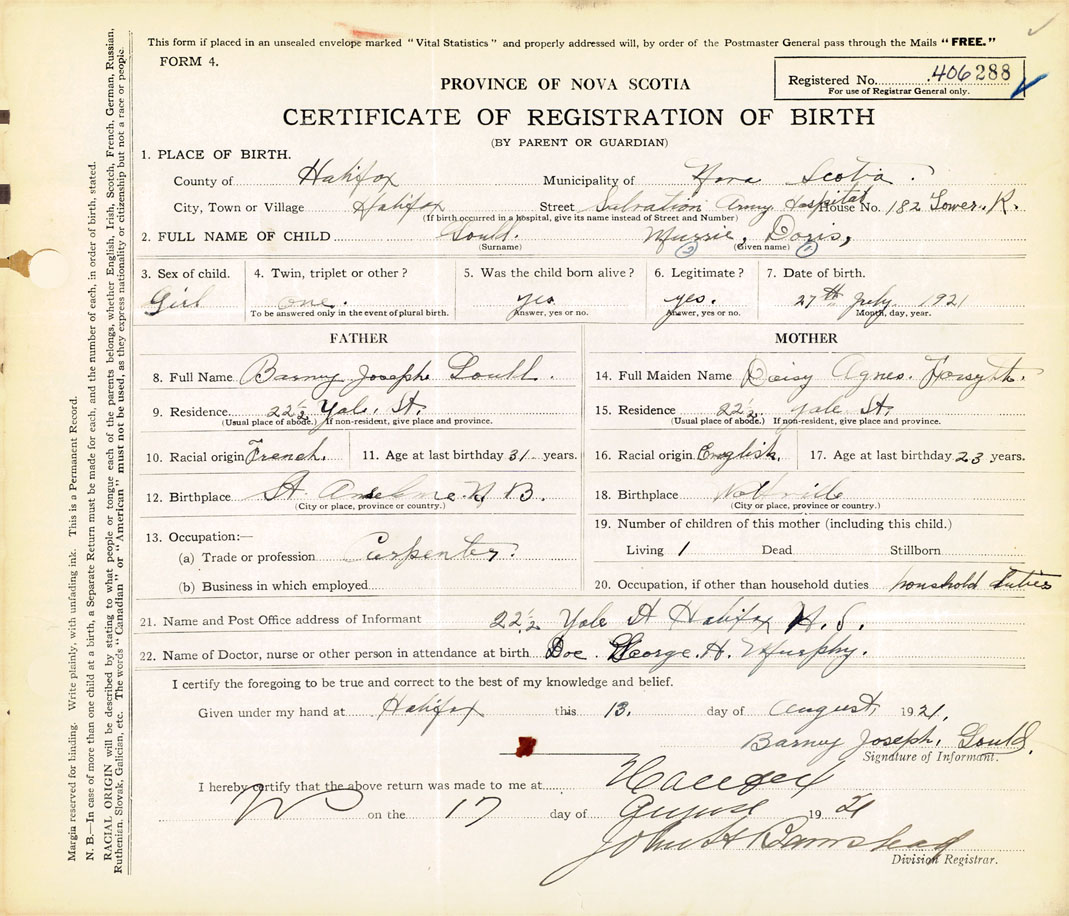 This form if placed in an unsealed envelope marked "Vital Statistics" and properly addressed will, by order of the Postmaster General pass through the Mails "FREE."
FORM 4.
Registered No. 406288
For use of Registrar General only.
PROVINCE OF NOVA SCOTIA
CERTIFICATE OF REGISTRATION OF BIRTH
(BY PARENT OR GUARDIAN)
1. PLACE OF BIRTH.
County of Halifax Municipality of Nova Scotia.
City, Town or Village Halifax Street Salvation Army Hospital House No. 182 Tower. R.
(If birth occurred in a hospital, give its name instead of Street and Number)
2. FULL NAME OF CHILD Gould. Murrie, Doris,
(Surname) 2 (Given name) 1
3. Sex of child. 4. Twin, triplet or other? 5. Was the child born alive? 6. Legitimate? 7. Date of birth.
Girl one. yes yes. 27th July 1921
To be answered only in the event of plural birth. Answer, yes or no. Answer, yes or no. Month, day, year.
FATHER MOTHER
8. Full Name Barney Josephe Gould. 14. Full Maiden Name Daisy Agnes. Forsyth.
9. Residence 22½ Yale. St. 15. Residence 22½ Yale St.
(Usual place of abode.) If non-resident, give place and province. (Usual place of abode.) If non-resident, give place and province.
10. Racial origin French. 11. Age at last birthday 31 years. 16. Racial origin English. 17. Age at last birthday 23 years.
12. Birthplace St Anselme. N B. 18. Birthplace Wolfville
(City or place, province or country.) (City or place, province or country.)
13. Occupation:— 19. Number of children of this mother (including this child.)
(a) Trade or profession Carpenter. Living 1 Dead Stillborn
(b) Business in which employed 20. Occupation, if other than household duties household duties
21. Name and Post Office address of Informant 22½ Yale St Halifax N. S.
22. Name of Doctor, nurse or other person in attendance at birth Doc. George. H. Murphy.
I certify the foregoing to be true and correct to the best of my knowledge and belief.
Given under my hand at Halifax this 13. day of August, 1921.
Barney Joseph, Gould.
Signature of Informant.
I hereby certify that the above return was made to me at Halifax
on the 17 day of August 1921
John H
Division Registrar.
Margia reserved for binding. Write plainly, with unfading ink. This is a Permanent Record.
N. B.—In case of more than one child at a birth, a Separate Return must be made for each, and the number of each, in order of birth, stated.
RACIAL ORIGIN will be described by stating to what people or tongue each of the parents belongs, whether English, Irish, Scotch, French, German, Russian,
Ruthenian, Slovak, Galician, etc. The words "Canadian" or "American" must not be used, as they express nationality or citizenship but not a race or people.